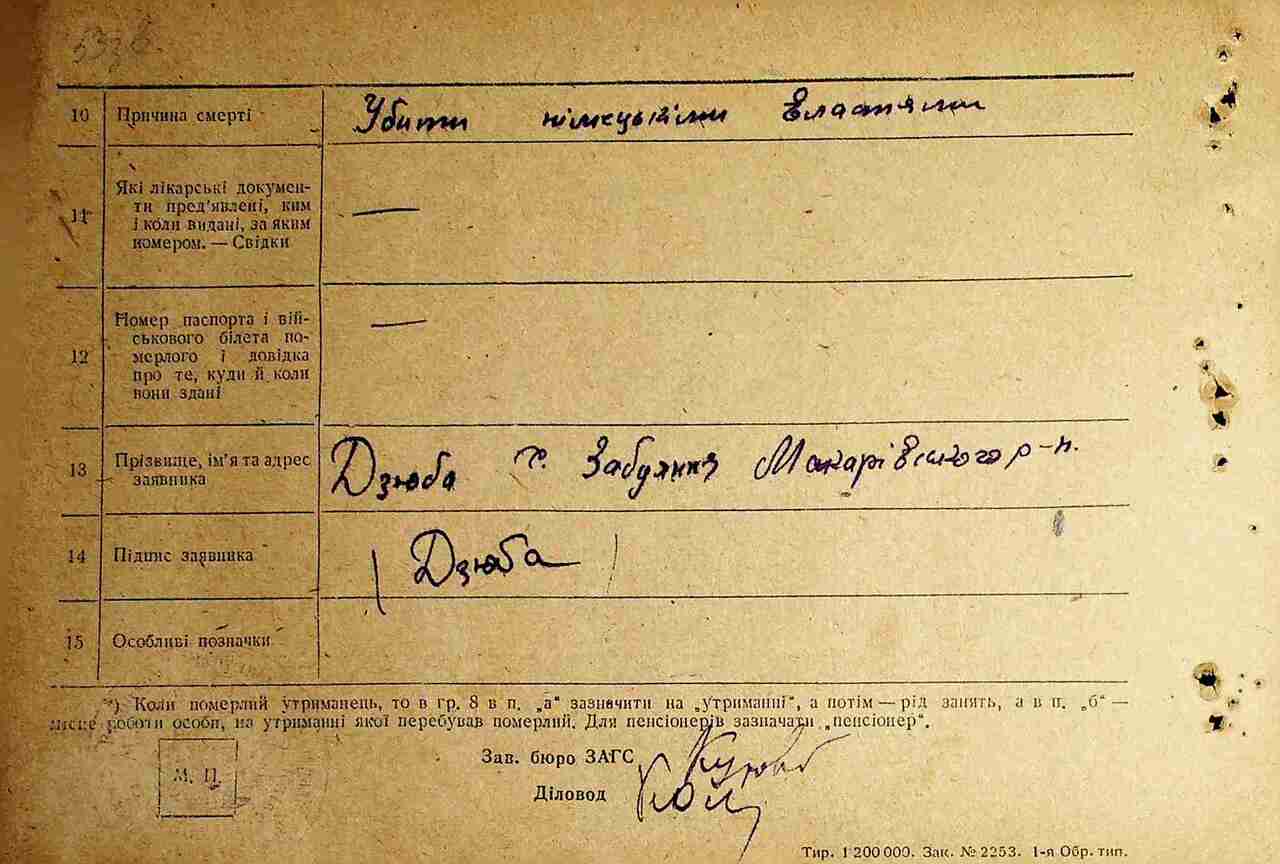 10 Причина смерті Убити німецькіми властями
11 Які лікарські докумен-
ти пред'явлені, ким
і коли видані, за яким
номером. — Свідки —
Номер паспорта і вій-
ськового білета по-
12 мерлого і довідка —
про те, куди й коли
вони здані
13 Прізвище, ім'я та адрес
заявника Дзюба с. Забуяння Макарівського р-н.
14 Підпис заявника (Дзюба)
15 Особливі позначки
*) Коли померлий утриманець, то в гр. 8 в п. „а“ зазначити на „утриманні“, а потім — рід занять, а в п. „б“ —
місце роботи особи, на утриманні якої перебував померлий. Для пенсіонерів зазначати „пенсіонер“.
Зав. бюро ЗАГС
М. П.
Діловод
Тир. 1 200 000. Зак. № 2253. 1-я Обр. тип.